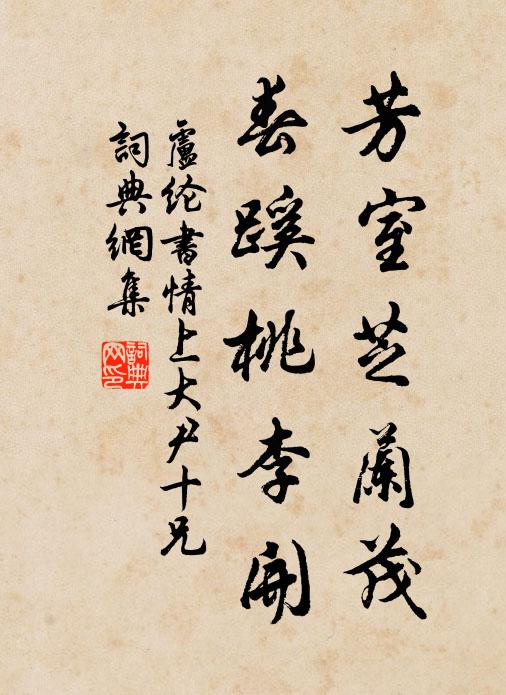 芳室芝蘭茂
春蹊桃李開
盧纶書情上大尹十兄
詞典網集
詞典网印